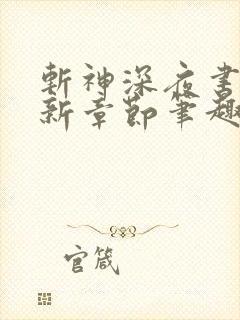 斬神深夜書
新章節筆趣
官箴